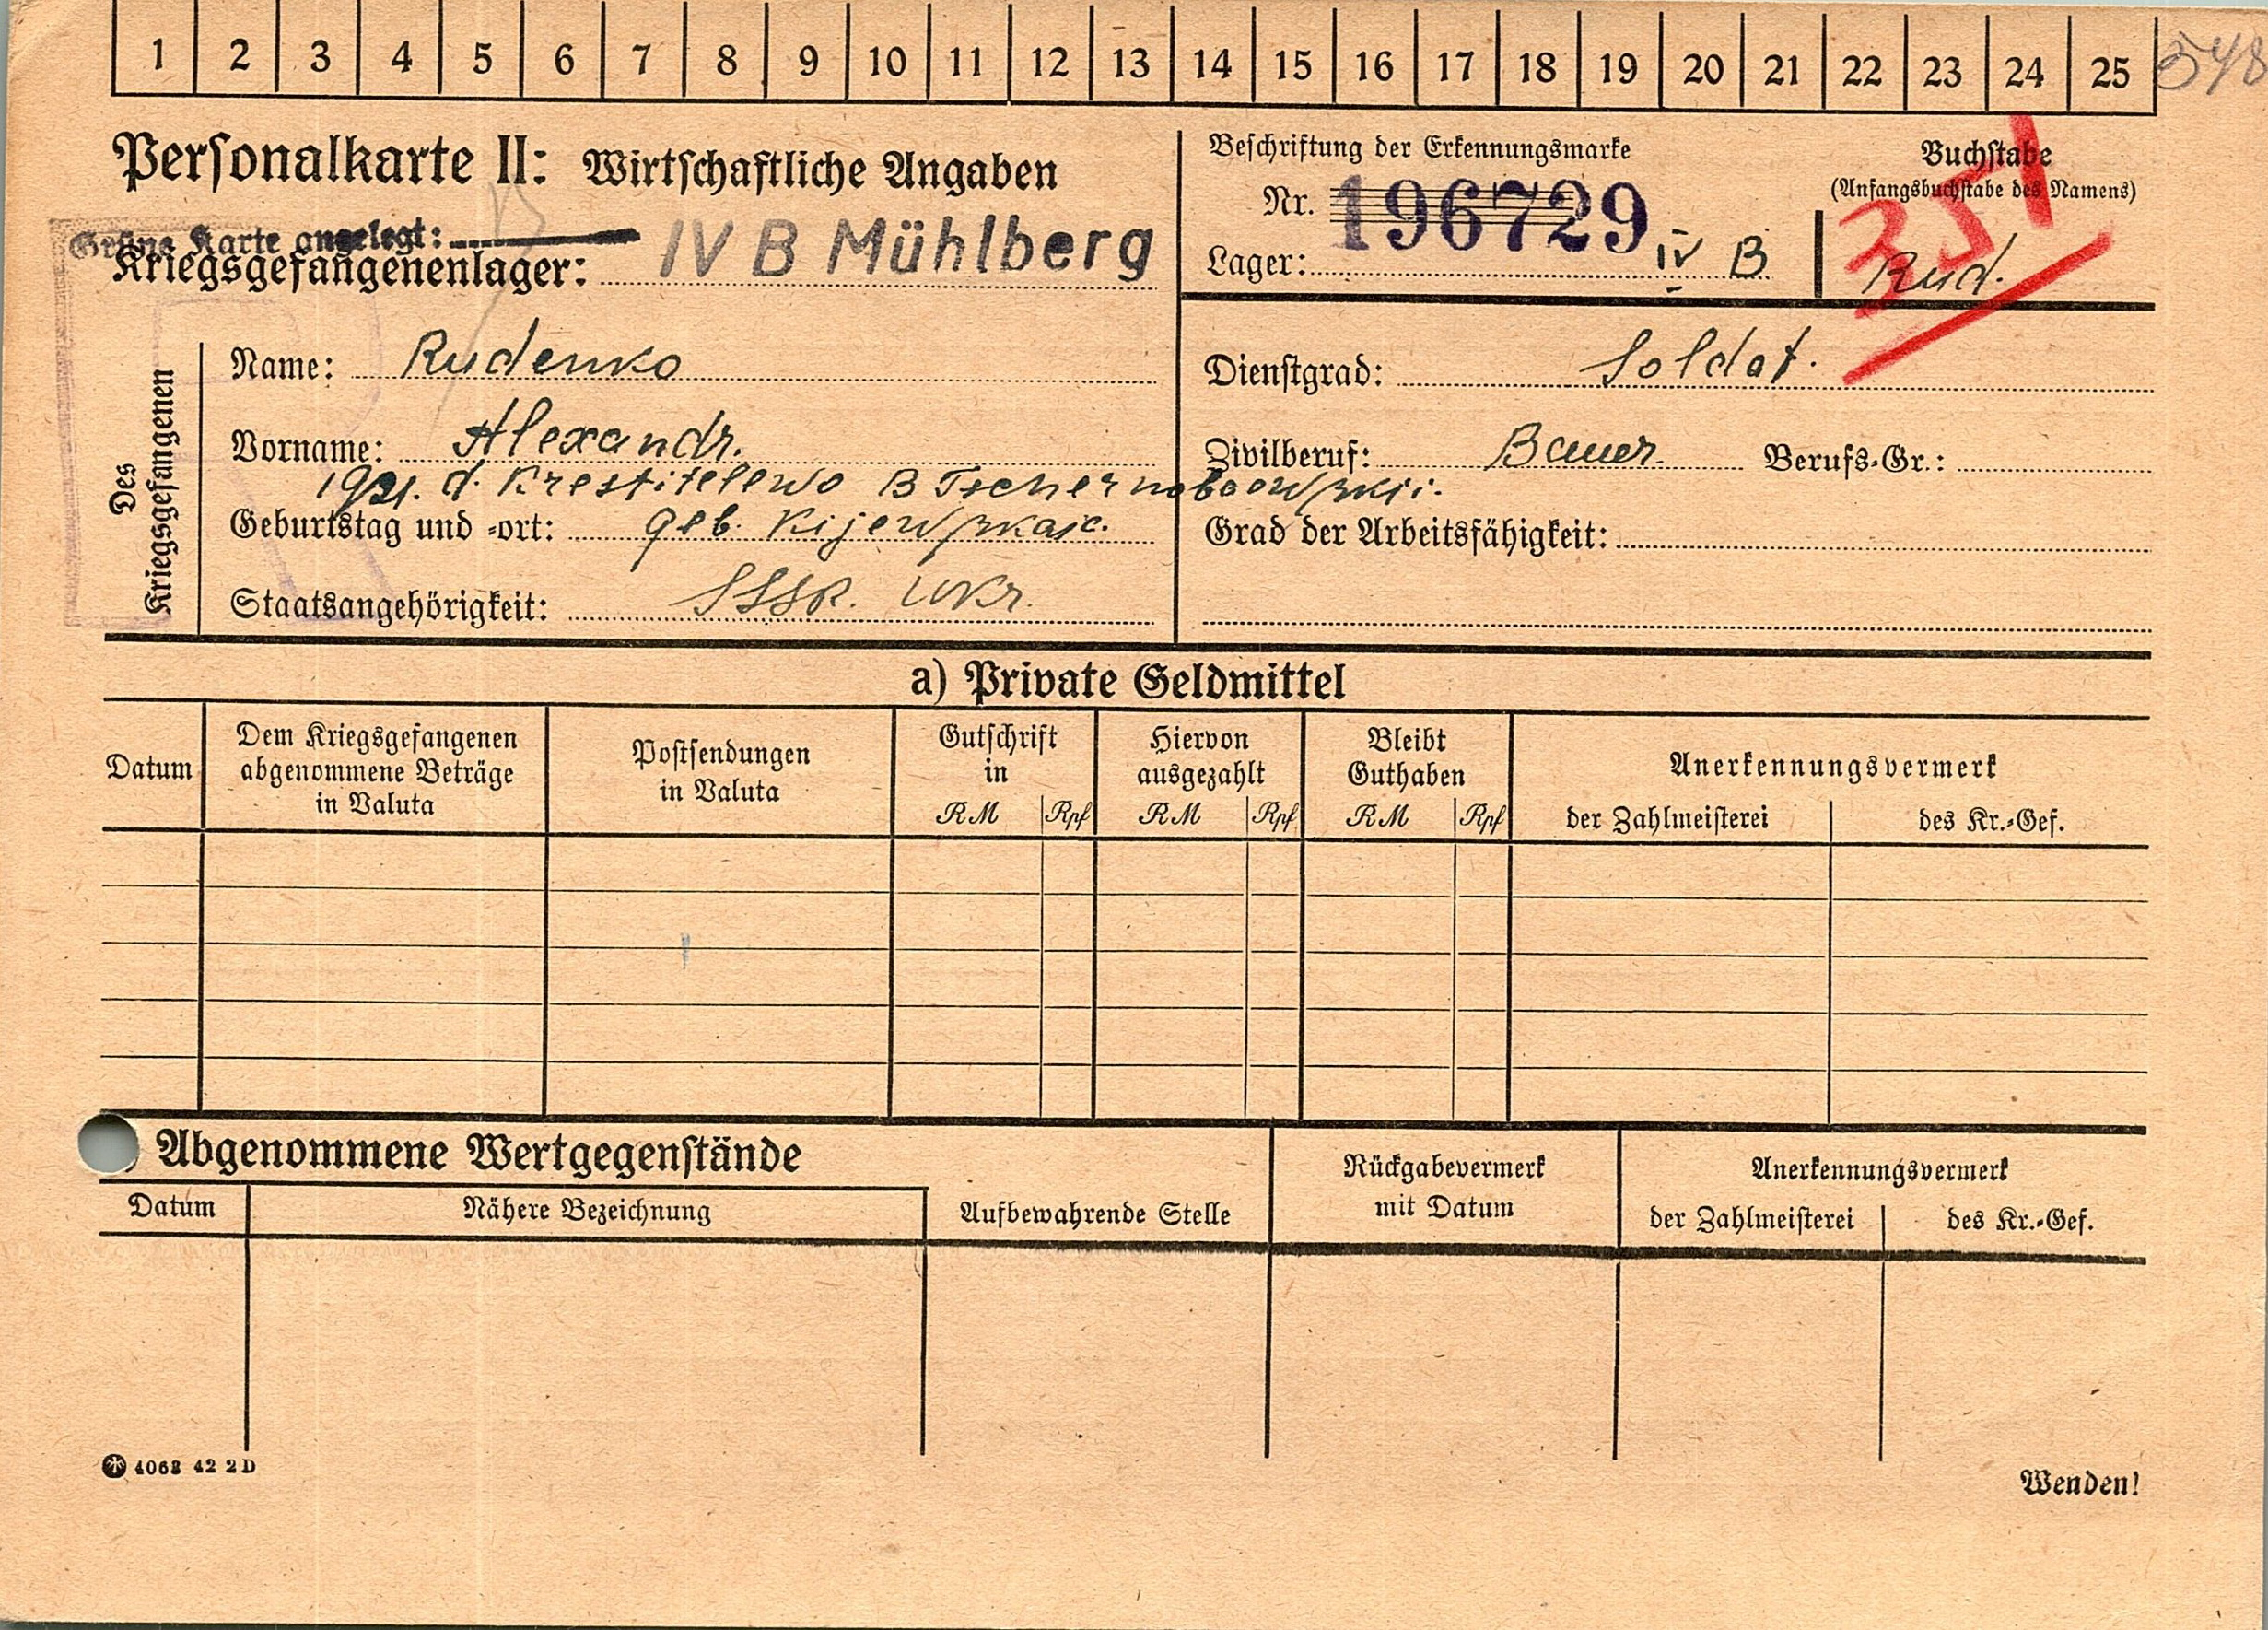 1 2 3 4 5 6 7 8 9 10 11 12 13 14 15 16 17 18 19 20 21 22 23 24 25 548
Personalkarte II: Wirtschaftliche Angaben
Grüne Karte angelegt:
Kriegsgefangenenlager: IV B Mühlberg
Beschriftung der Erkennungsmarke
Nr. 196729
Lager: IV B
Buchstabe
(Anfangsbuchstabe des Namens)
351
Rud.
Des Kriegsgefangenen
Name: Rudenko
Vorname: Alexandr.
1921. d. Krestitelewo B
Geburtstag und =ort: geb.
Staatsangehörigkeit: SSSR. Ukr.
Dienstgrad: Soldat.
Zivilberuf: Bauer Berufs=Gr.:
Grad der Arbeitsfähigkeit:
a) Private Geldmittel
Datum
Dem Kriegsgefangenen
abgenommene Beträge
in Valuta
Postsendungen
in Valuta
Gutschrift
in
RM Rpf
Hiervon
ausgezahlt
RM Rpf
Bleibt
Guthaben
RM Rpf
Anerkennungsvermerk
der Zahlmeisterei des Kr.=Gef.
Abgenommene Wertgegenstände
Datum
Nähere Bezeichnung
Aufbewahrende Stelle
Rückgabevermerk
mit Datum
Anerkennungsvermerk
der Zahlmeisterei des Kr.=Gef.
4068 42 2D
Wenden!